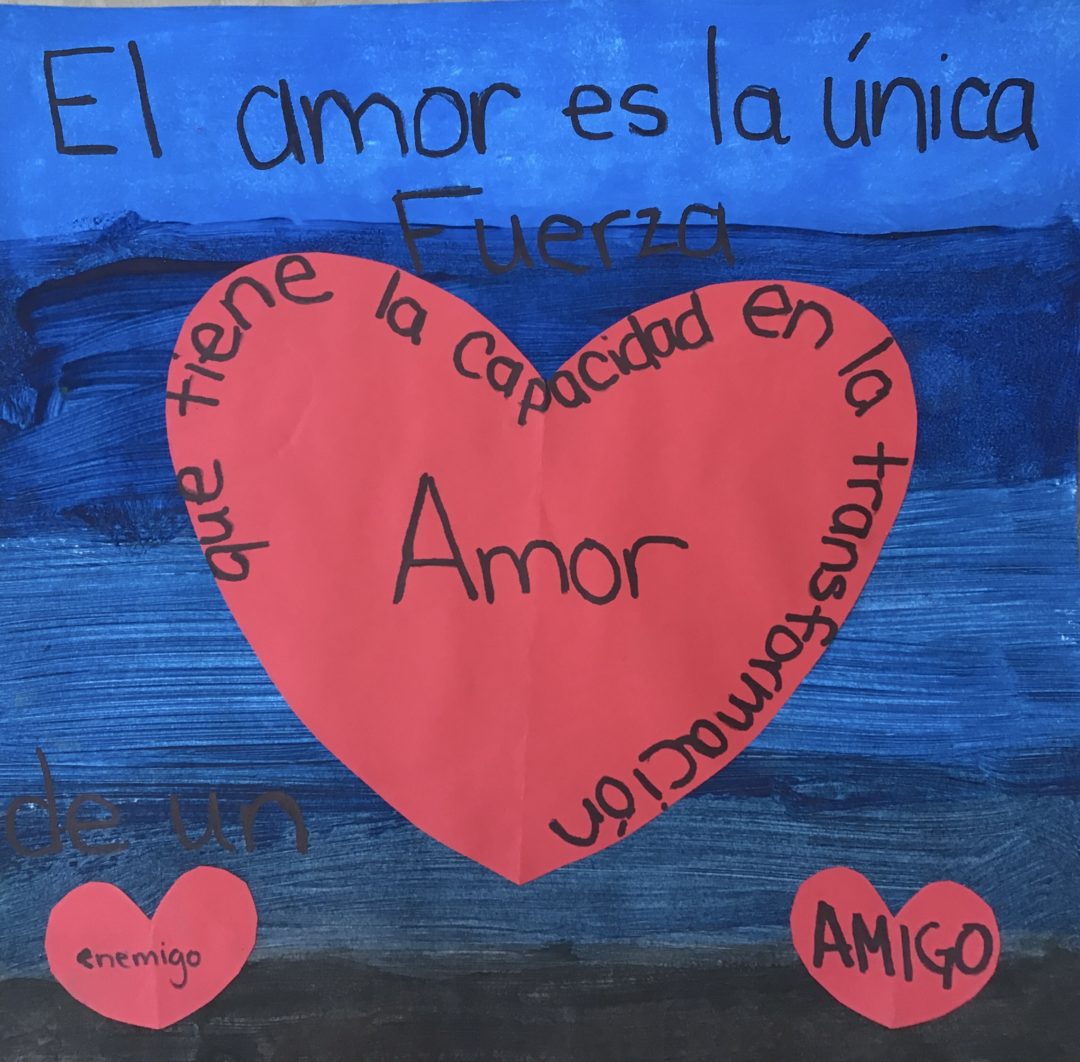 El amor es la única
Fuerza
que tiene la capacidad en la transformación
Amor
de un
enemigo
AMIGO